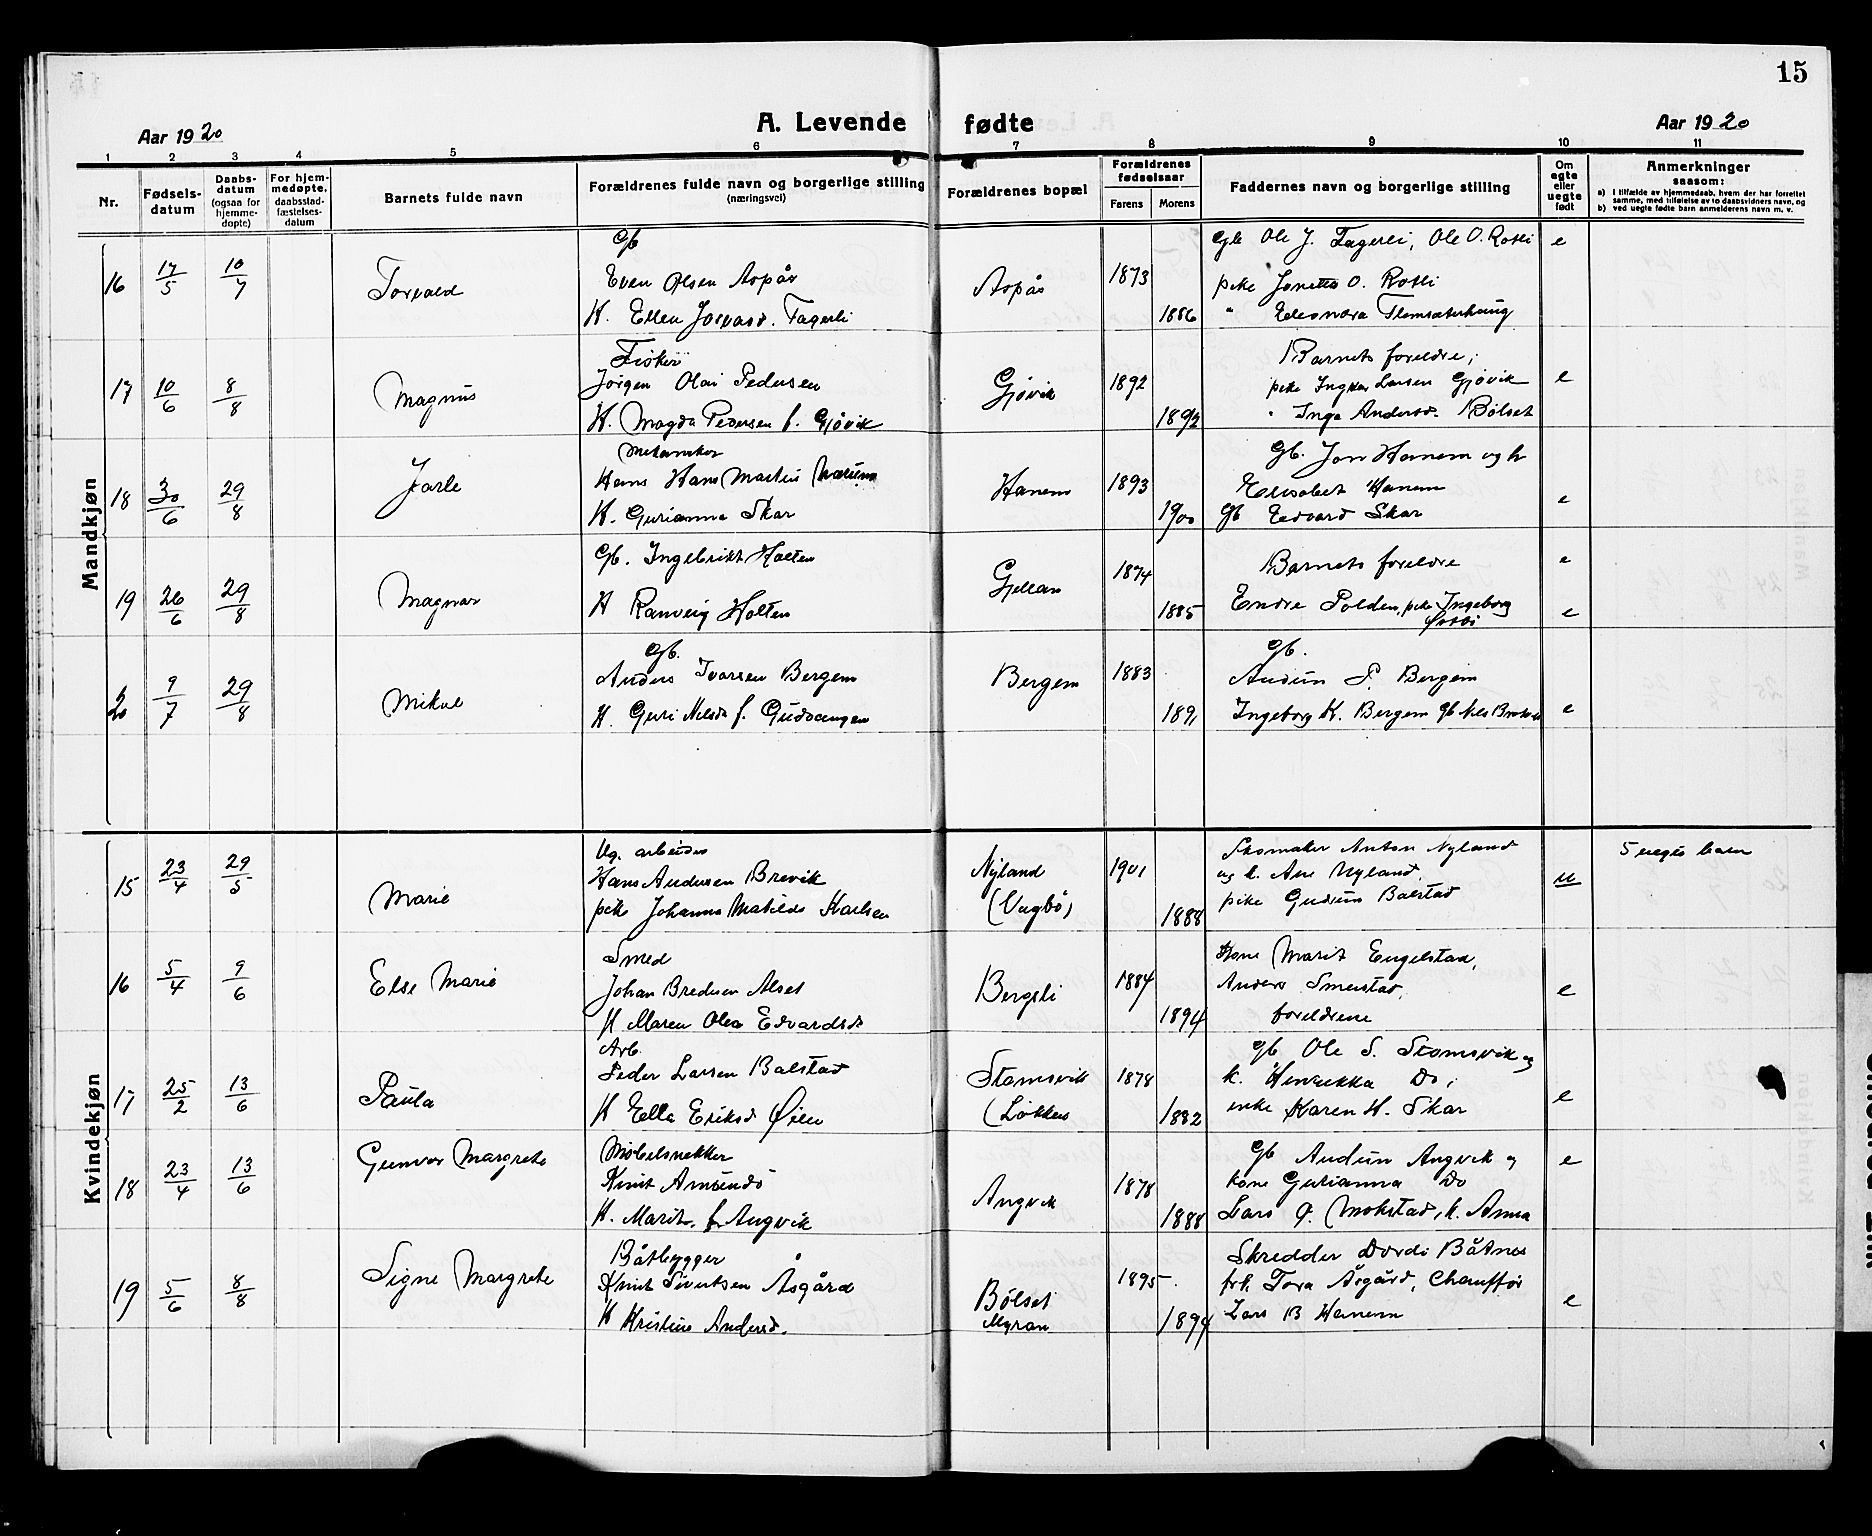 15
A. Levende fødte
Aar 1920
Aar 1920
1 2 3 4 5 6 7 8 9 10 11
Nr.
Fødsels-
datum
Daabs-
datum
(ogsaa for
hjemme-
døpte)
For hjem-
medøpte,
daabsstad-
fæstelses-
datum
Barnets fulde navn
Forældrenes fulde navn og borgerlige stilling
(næringsvei)
Forældrenes bopæl
Forældrenes
fødselsaar
Farens
Morens
Faddernes navn og borgerlige stilling
Om
ægte
eller
uægte
født
Anmerkninger
saasom:
a) I tilfælde av hjemmedaab, hvem der har forrettet
samme, med tilføielse av to daabsvidners navn, og
b) ved uegte fødte barn anmelderens navn m. v.
Mandkjøn
16 17/5 10/7 Torvald
Gb
Even Olsen Aspås
K. Ellen Fagerli
Aspås 1873 1886
Gb Ole J. Fagerli, Ole O. Rotli
pike O. Rotli
" Eleonora
e
17 10/6 8/8 Magnus
Fisker
Jørgen Olai Pedersen
K. Magda Pedersen f. Gjøvik
Gjøvik 1892 1892
Barnets foreldre;
pike Larsen Gjøvik
" Inga Andersd. Bølset
e
18 30/6 29/8 Jarle
Mekaniker
Hans Martin
K. Gurianna Skar
Hanem 1893 1900
Gb. Jon Hanem og h
Elisabet Hanem
Gb Edvard Skar
e
19 26/6 29/8 Magnar
Gb. Ingebrikt Holten
K Ranveig Holten
Gjellan 1874 1885
Barnets foreldre
Endre Polden, pike Ingeborg
e
e
20 9/7 29/8 Mikal
Gb.
Anders Ivarsen Bergem
K. Guri Nilsd f. Gudvangen
Bergem 1883 1891
Gb.
Audun P. Bergem
Ingeborg K. Bergem Gb Nils
e
Kvindekjøn
15 23/4 29/5 Marie
Ug. arbeider
Hans Andersen Brevik
pike Johanna Matilde Karlsen
Nyland
(Vagbø)
1901 1888
Skomaker Anton Nyland
og k. Ane Nyland,
pike Gudrun Balstad
u
5 uegte barn
16 5/4 9/6 Else Marie
Smed
Johan Bredesen Alset
K Maren Olea Edvardsd
Bergsli 1884 1894
Kone Marit Engelstad,
Anders Smeistad,
foreldrene
e
17 25/2 13/6 Paula
Arb.
Peder Larsen Balstad
K Ella Eriksd Øien
Stomsvik
(Løkken
1878 1882
Gb Ole S. Stomsvik og
k. Henrikka Do;
enke Karen H. Skar
e
18 23/4 13/6 Gunvor Margrete
Møbelsnekker
Knut Amundø
K. Marit f. Angvik
Angvik 1878 1888
Gb Audun Angvik og
kone Gurianna Do
Lars O. Mokstad, k. Anna
e
19 5/6 8/8 Signe Margrete
Båtbygger
Knut Sivertsen Åsgård
K Kristine Andersd.
Bølset
Myran
1895 1894
Skredder Dordi Båtnes
frk. Tora Åsgård, Chauffør
Lars B Hanem
e